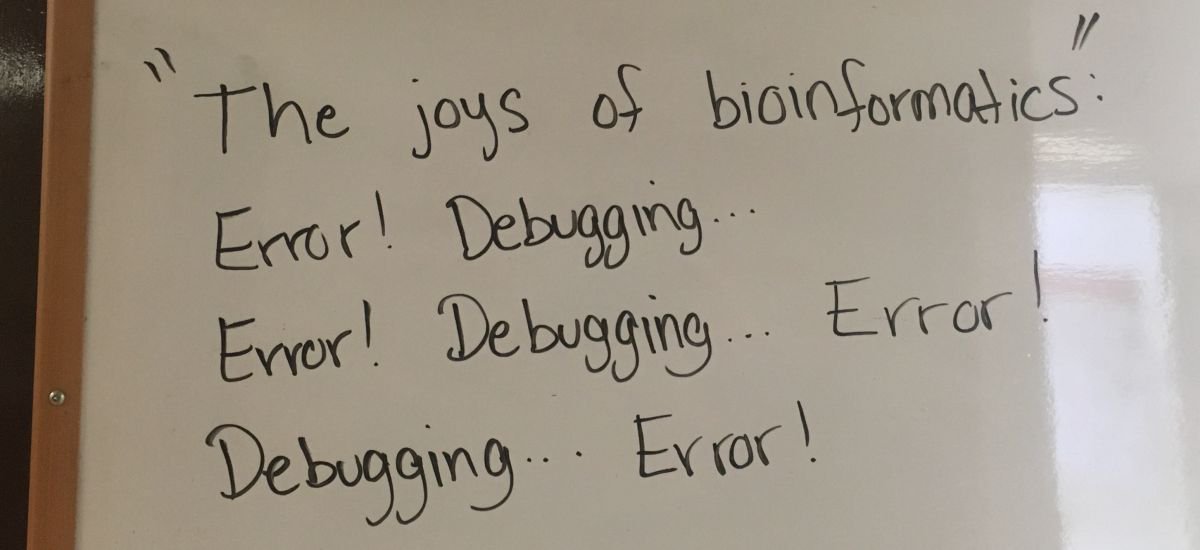 "The joys of bioinformatics":
Error! Debugging...
Error! Debugging... Error!
Debugging... Error!